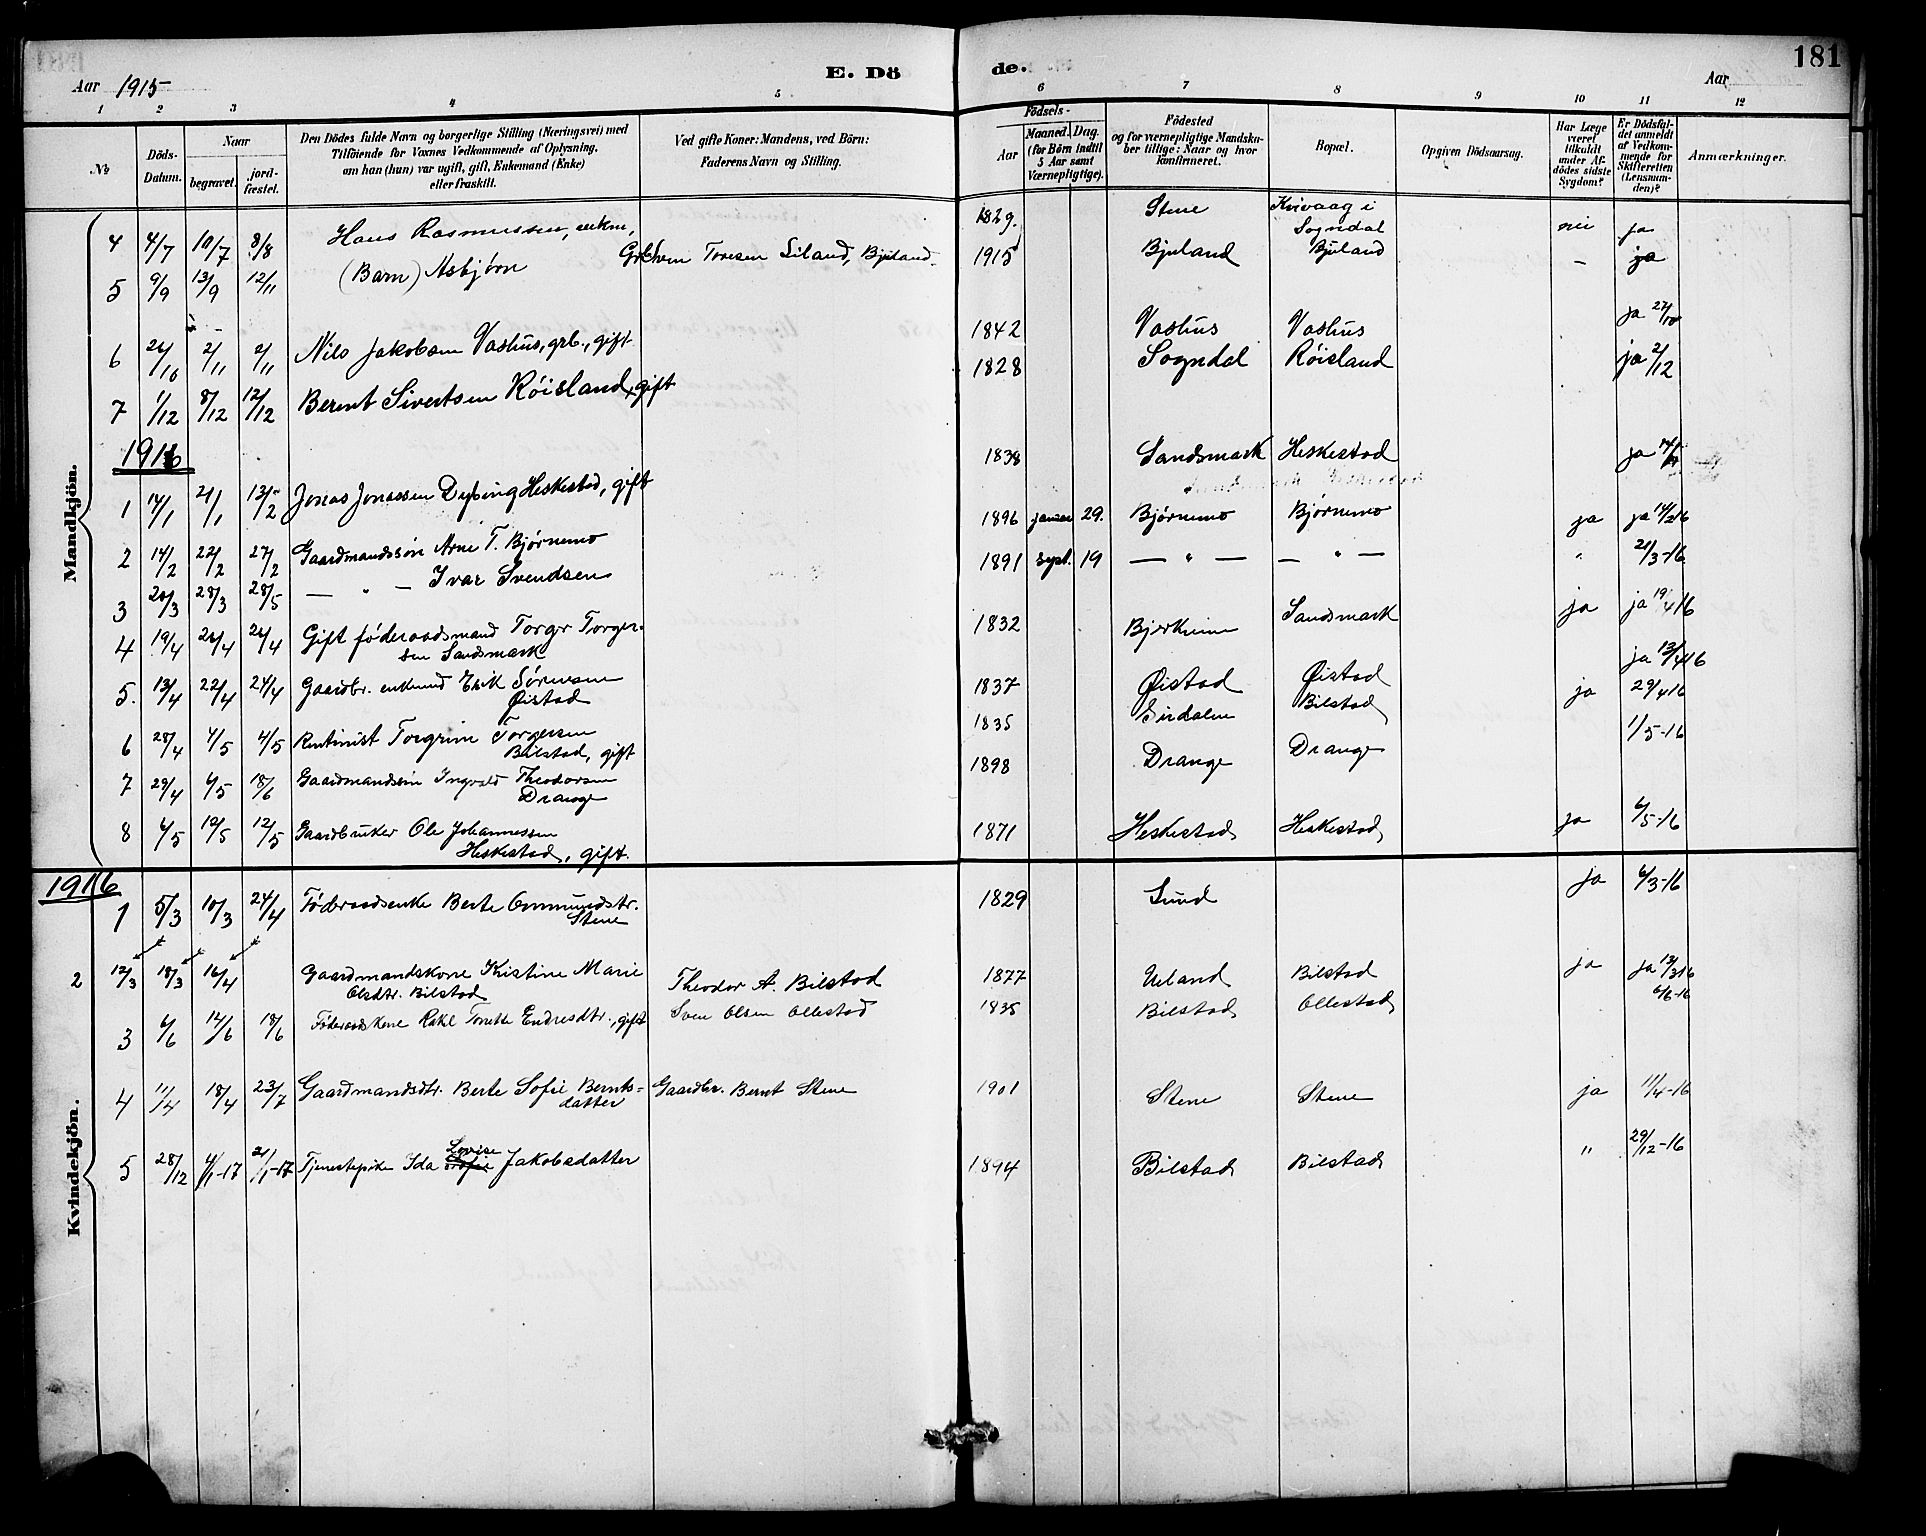 181
Aar 1915
E. Dö
de.
Aar
1 2 3 4 5 6 7 8 9 10 11 12
№
Döds-Datum.
Naar
begravet.
jord-fæstet.
Den Dödes fulde Navn og borgerlige Stilling (Næringsvei) med
Tilföiende for Voxnes Vedkommende af Oplysning,
om han (hun) var ugift, gift, Enkemand (Enke)
eller fraskilt.
Ved gifte Koner: Mandens, ved Börn:
Faderens Navn og Stilling.
Födsels-
Aar
Maaned. Dag.
(for Börn indtil
5 Aar samt
Værnepligtige).
Födested
og for værnepligtige Mandska-
ber tillige: Naar og hvor
konfirmeret.
Bopæl.
Opgiven Dödsaarsag.
Har Læge
været
tilkaldt
under Af-
dödes sidste
Sygdom?
Er Dödsfal-
det anmeldt
af Vedkom-
mende for
Skifteretten
(Lensman-
den)?
Anmærkninger.
Mandkjön.
4 4/7 10/7 8/8 Hans Rasmussen, enkm, 1829. Stene Kvivaag i Sogndal nei ja
5 9/9 13/9 12/11 (Barn) Asbjørn Sven Toresen Eiland, Bjuland. 1915 Bjuland Bjuland — ja
6 /10 2/11 2/11 Nils Jakobsen Vashus, grb., gift 1842 Vashus Vashus ja 27/10
7 1/12 8/12 12/12 Bernt Sivertsen Röisland, gift 1828 Sogndal Röisland ja 2/12
1916
1 14/1 21/1 13/2 Jonas Jonassen Dybing Heskestad, gift 1838 Sandsmark Heskestad ja
2 14/2 22/2 27/2 Gaardmandssøn Arne T. Bjørnemo 1896 januar 29. Bjørnemo Bjørnemo ja ja 14/2 16
3 20/3 28/3 28/5 — " — Ivar Svendsen 1891 sept. 19 — " — — " — " 21/3-16
4 19/4 26/4 26/4 Gift føderaadsmand Torgr Torger-
sen Sandsmark 1832 Bjerkreim Sandsmark ja ja 19/4 16
5. 13/4 22/4 24/4 Gaardbr. enkmd Erik Sørensen
Øistad 1837 Øistad Øistad ja 13/4 16
6 28/4 4/5 4/5 Rentenist Torgrim Torgersen
Bilstad, gift 1835 Sirdalen Bilstad ja 29/4 16
7 29/4 6/5 18/6 Gaardmandssøn Ingvald Theodorsen
Drange 1898 Drange Drange 1/5-16
8 6/5 12/5 12/5 Gaardbruker Ole Johannessen
Heskestad, gift. 1871 Heskestad Heskestad ja 6/5-16
1916
Kvindekjön.
1 5/3 10/3 24/4 Føderaadsenke Berte Ommundstr.
Stene 1829 Lund ja 6/3-16
2 12/3 18/3 16/4 Gaardmandskone Kristine Marie
Olsdtr. Bilstad Theodor A. Bilstad 1877 Ueland Bilstad ja ja 13/3 16
3 6/6 14/6 18/6 Føderaadskone Rakl Tomette Endresdtr., gift Sven Olsen Ollestad 1835 Bilstad Ollestad 6/6-16
4 11/4 18/4 23/7 Gaardmandsdtr. Berte Sofie Bernts-
datter Gaardbr. Bernt Stene 1901 Stene Stene ja 11/4-16
5 28/12 4/1-17 21/1-17 Tjenestepike Ida Lovise Jakobsdatter 1894 Bilstad Bilstad " 29/12-16